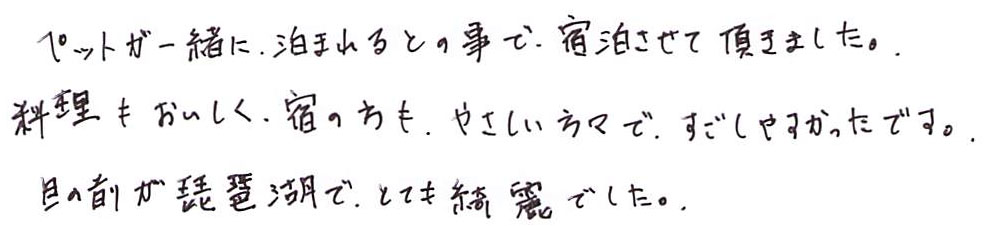 ペットが一緒に、泊まれるとの事で、宿泊させて頂きました。
料理もおいしく、宿の方も、やさしい方々で、すごしやすかったです。
目の前が琵琶湖で、とても綺麗でした。